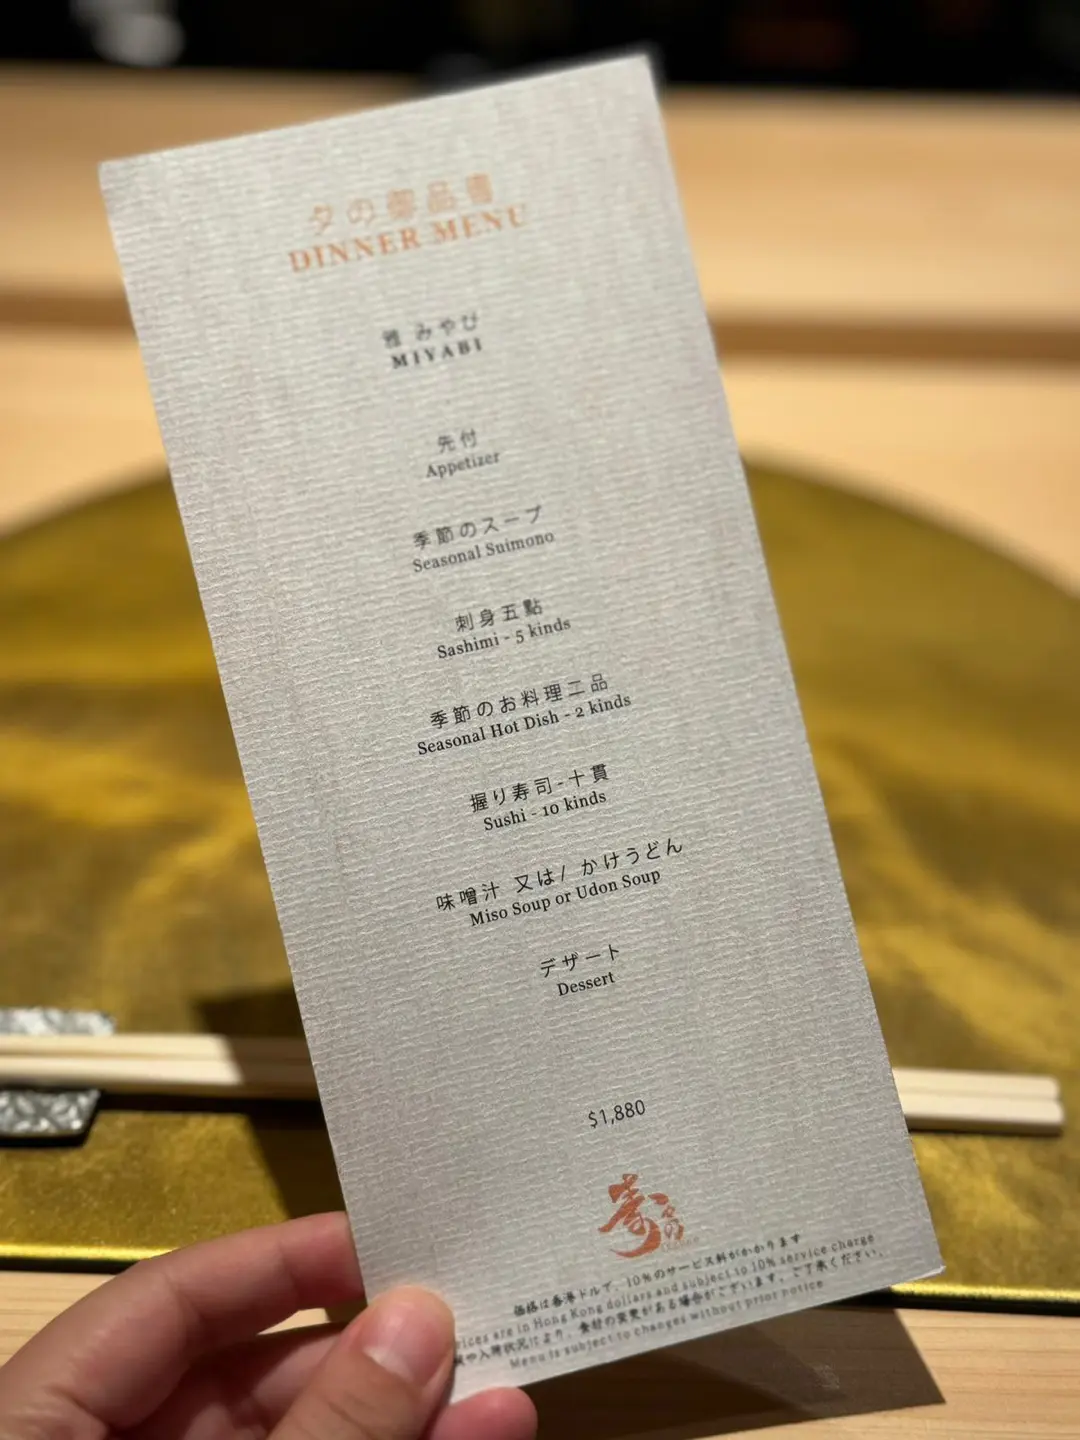 夕の御品書
DINNER MENU
雅 みやび
MIYABI
先付
Appetizer
季節のスープ
Seasonal Suimono
刺身五點
Sashimi - 5 kinds
季節のお料理二品
Seasonal Hot Dish - 2 kinds
握り寿司-十貫
Sushi - 10 kinds
味噌汁 又は/ かけうどん
Miso Soup or Udon Soup
デザート
Dessert
$1,880
価格は香港ドルで、10%のサービス料がかかります
are in Hong Kong dollars and subject to 10% service charge
や入荷状況により、食材の変更がある場合がございます。ご了承ください。
Menu is subject to changes without prior notice